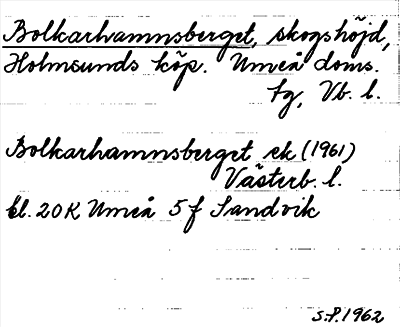 Bolkarhamnsberget, skogshöjd,
Holmsunds köp. Umeå doms.
tg, Vb. l.
Bolkarhamnsberget ek (1961)
Västerb. l.
bl. 20K Umeå 5f Sandvik
S.P. 1962